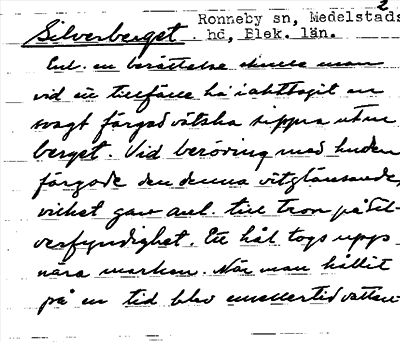 2
Ronneby sn, Medelstads
Silverberget. hd, Blek. län.
Enl. en berättelse skulle man
vid ett tillfälle ha iakttagit en
svagt färgad vätska sippra ut ur
berget. Vid beröring med huden
färgade den denna vitglänsande,
vilket gav anl. till tron på sil-
verfyndighet. Ett hål togs upp
nära marken. När man hållit
på en tid blev emellertid vatten-